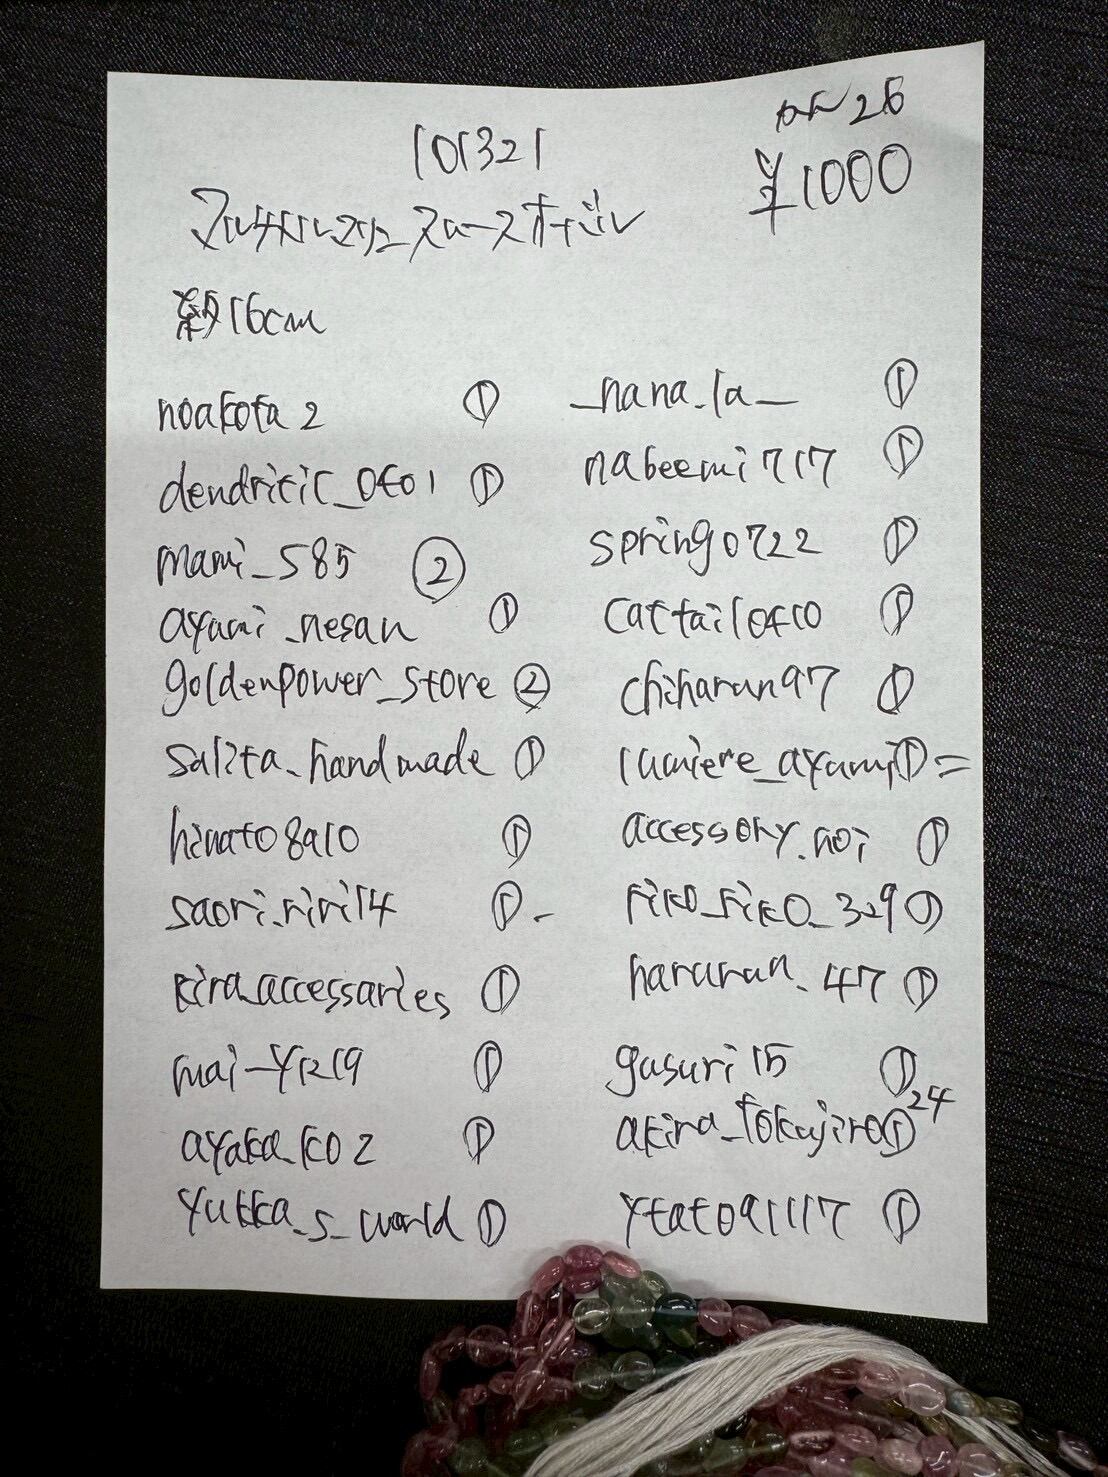 101321
¥1000
マルチトルマリン スムースオーバル
約16cm
noakota2 ①
dendritic_0401 ①
mami_585 ②
ayumi_nesan ①
goldenpower_store ②
salita_handmade ①
hinato8910 ①
saori.riri14 ①
kira_accessaries ①
mai-yk219 ①
ayaka_ko2 ①
yukka_s_world ①
_nana.la_ ①
nabeemi717 ①
spring0722 ①
cattail0410 ①
chiharun97 ①
lumiere_ayumi ①
accessory.noi ①
riko_riko_329 ①
hararan.47 ①
gusuri15 ①
akira_tokujiro ① 24
ytat091117 ①